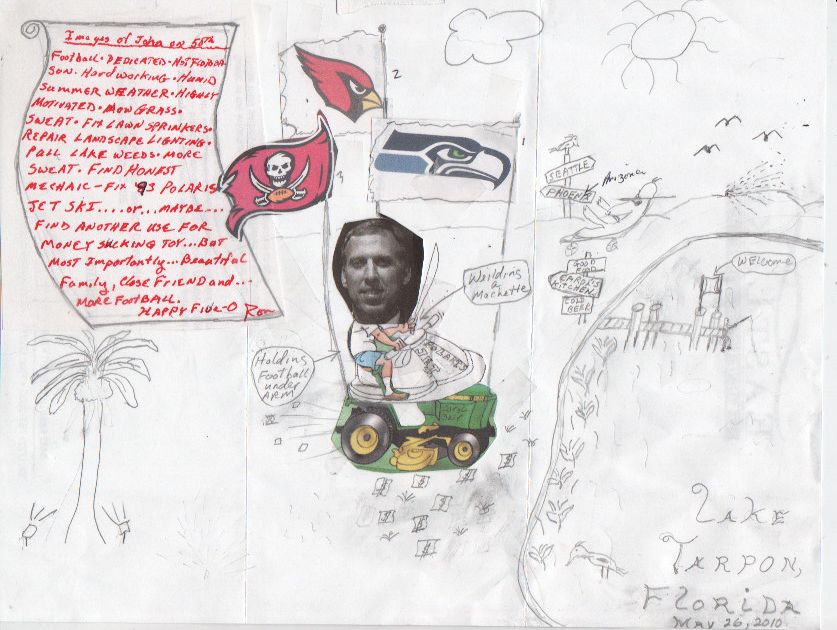 Images of John on 50th
Football · Dedicated · Hot Florida
Sun · Hard working · Humid
Summer Weather · Highly
Motivated · Mow Grass ·
Sweat · Fix Lawn Sprinkers ·
Repair Landscape Lighting ·
Pull Lake Weeds · More
Sweat · Find Honest
Mechaic - Fix '93 Polaris
Jet Ski....or...maybe....
Find Another use for
Money Sucking Toy...But
Most Importantly...Beautiful
Family, Close Friend and...
More Football.
Happy Five-O Ron
2
1
3
Weilding
a
Machette
Holding
Football
under
ARM
Seattle
Phoenix
Arizona
Good
Food
Kitchen
Cold
Beer
Welcome
Lake
Tarpon,
Florida
May 26, 2010